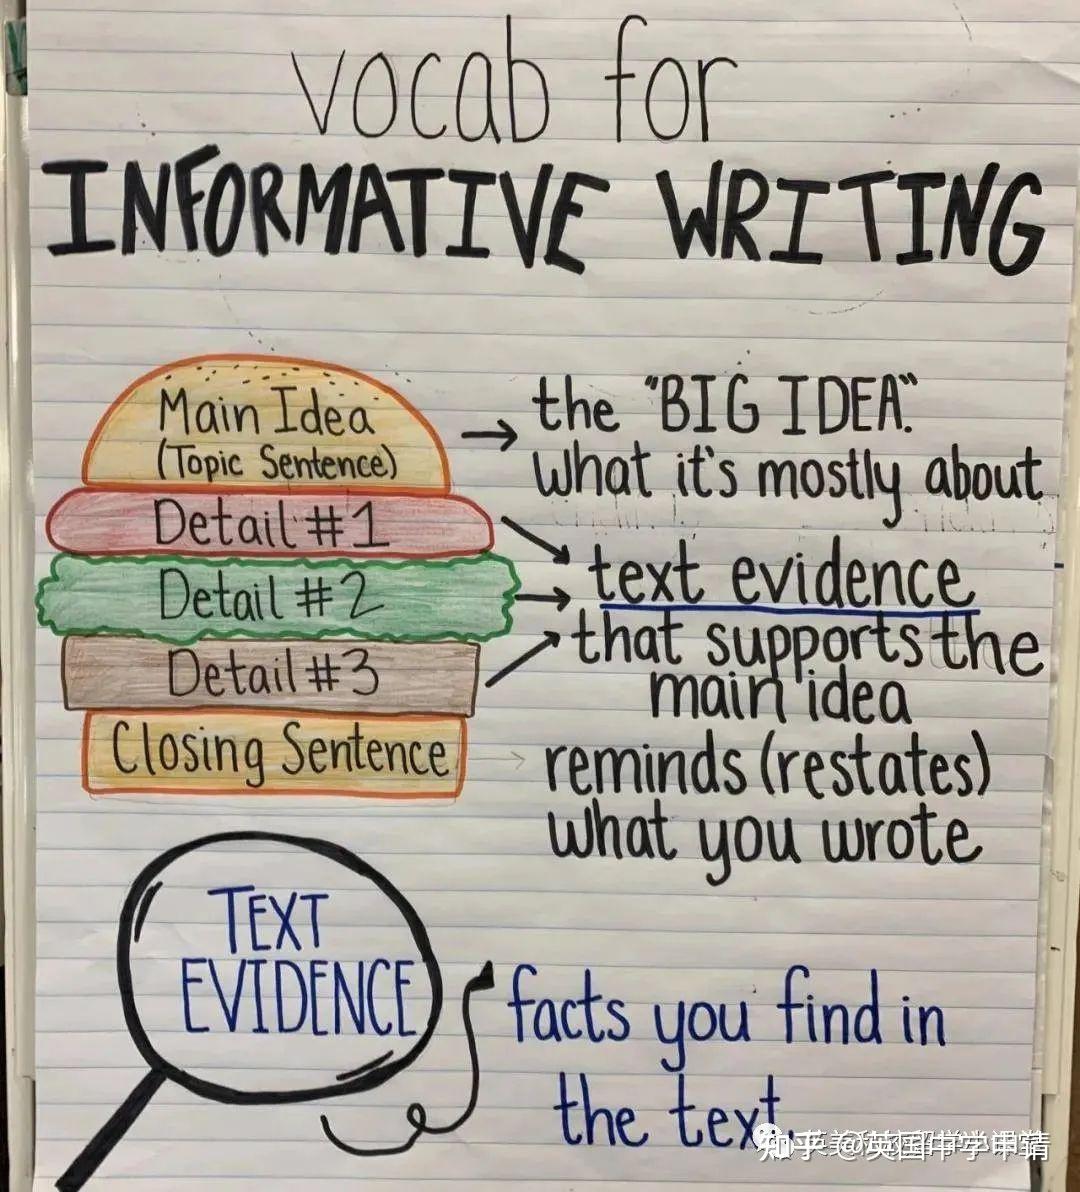 vocab for
INFORMATIVE WRITING
Main Idea
(Topic Sentence)
the "BIG IDEA."
what it's mostly about
Detail #1
Detail #2
Detail #3
text evidence
that supports the
main idea
Closing Sentence
reminds (restates)
what you wrote
TEXT
EVIDENCE
facts you find in
the text.
知乎 @英国中学申请